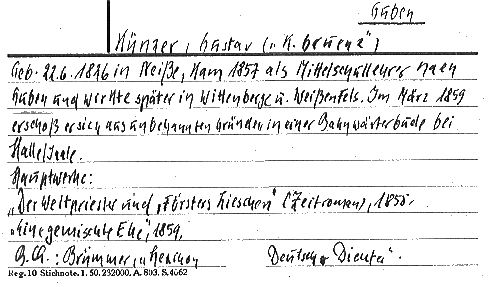 Guben
Münzer, Gustav („K. Bruene")
Geb. 22.6.1826 in Neiße, kam 1857 als Mittelschullehrer nach
Guben und wirkte später in Wittenberge u. Weißenfels. Im März 1859
erschoß er sich aus unbekannten Gründen in einer Bahnwärterbude bei
Halle/Saale.
Hauptwerke:
„Der Weltpriester und „Försters Lieschen" (Zeitroman), 1858.
„Eine gemischte Ehe", 1859.
: Brümmer, Lexikon Deutscher Dichter".
Reg. 10 Stichnote. 1. 50. 232000. A. 803. S. 4662